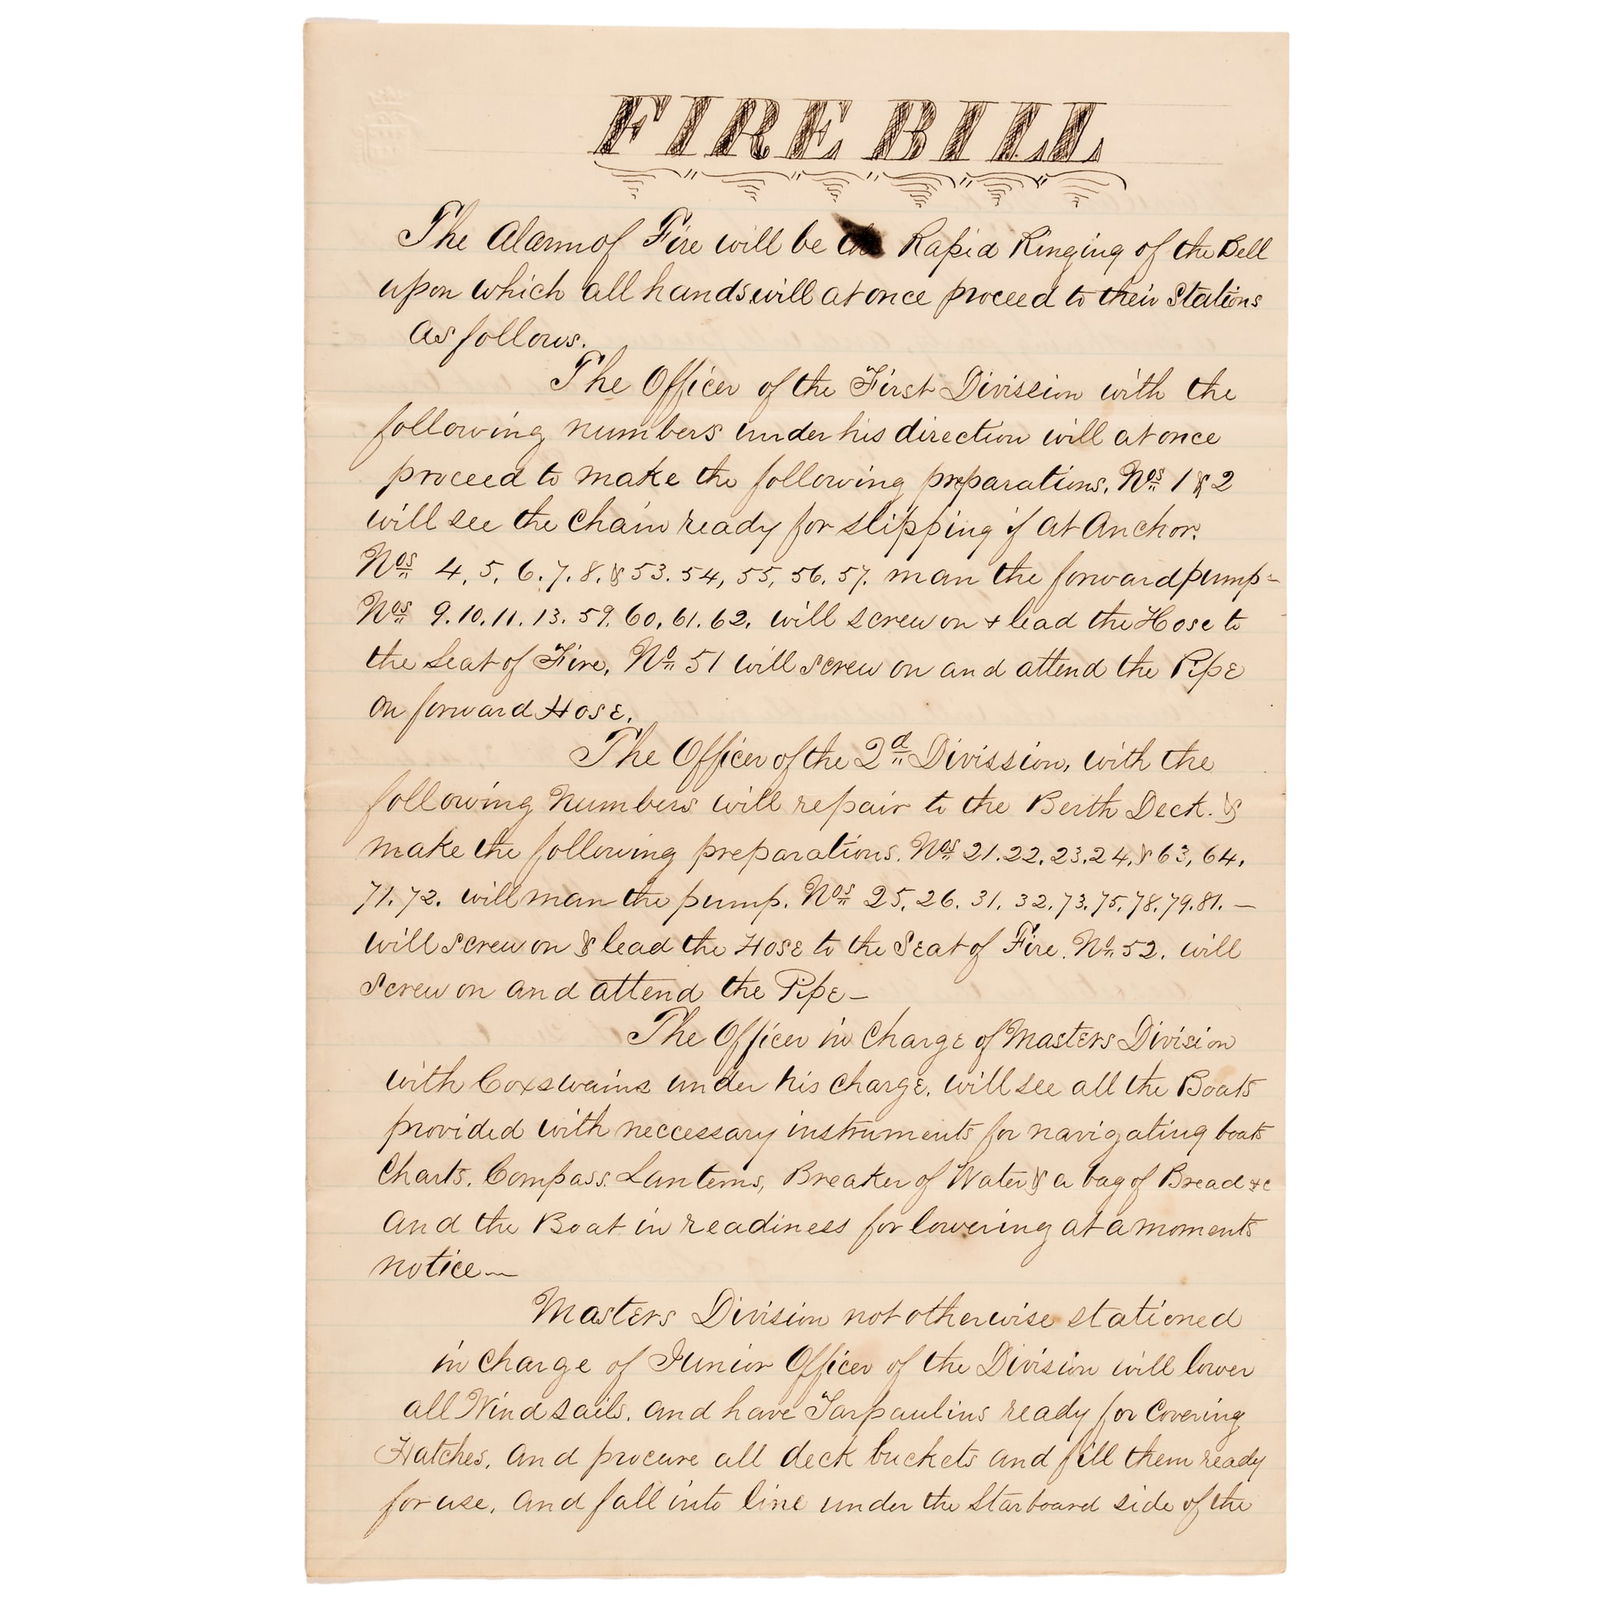 FIRE BILL
The Alarm of Fire will be the Rapid Ringing of the Bell
upon which all hands will at once proceed to their Stations
as follows.
The Officer of the First Division with the
following numbers under his direction will at once
proceed to make the following preparations. Nos 1 & 2
will see the Chain ready for slipping if at Anchor.
Nos 4, 5, 6. 7. 8. & 53. 54, 55, 56. 57. man the forward pump-
Nos 9. 10. 11. 13. 59. 60, 61. 62. will screw on + lead the Hose to
the Seat of Fire, No 51 will screw on and attend the Pipe
on forward Hose.
The Officer of the 2d Division, with the
following Numbers will repair to the Berth Deck. &
make the following preparations. Nos 21. 22. 23. 24. & 63, 64.
71. 72. will man the pump. Nos 25, 26. 31. 32. 73. 75. 78. 79. 81. —
will screw on & lead the Hose to the Seat of Fire. No 52. will
screw on and attend the Pipe —
The Officer in Charge of Masters Division
with Coxswains under his charge. will see all the Boats
provided with neccessary instruments for navigating boats
Charts. Compass. Lanterns, Breaker of Water & a bag of Bread &c
and the Boat in readiness for lowering at a moments
notice —
Masters Division not otherwise stationed
in charge of Junior Officer of the Division will lower
all Wind sails. and have Tarpaulins ready for Covering
Hatches. and procure all deck buckets and fill them ready
for use. and fall into line under the Starboard side of the